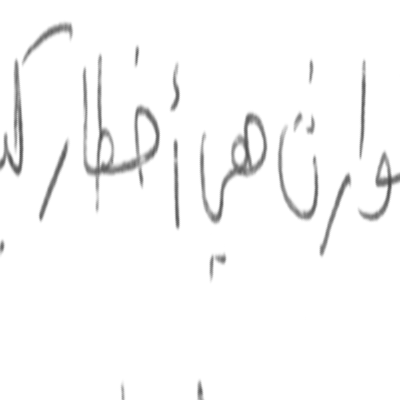 وارث هي أخطار كبـ